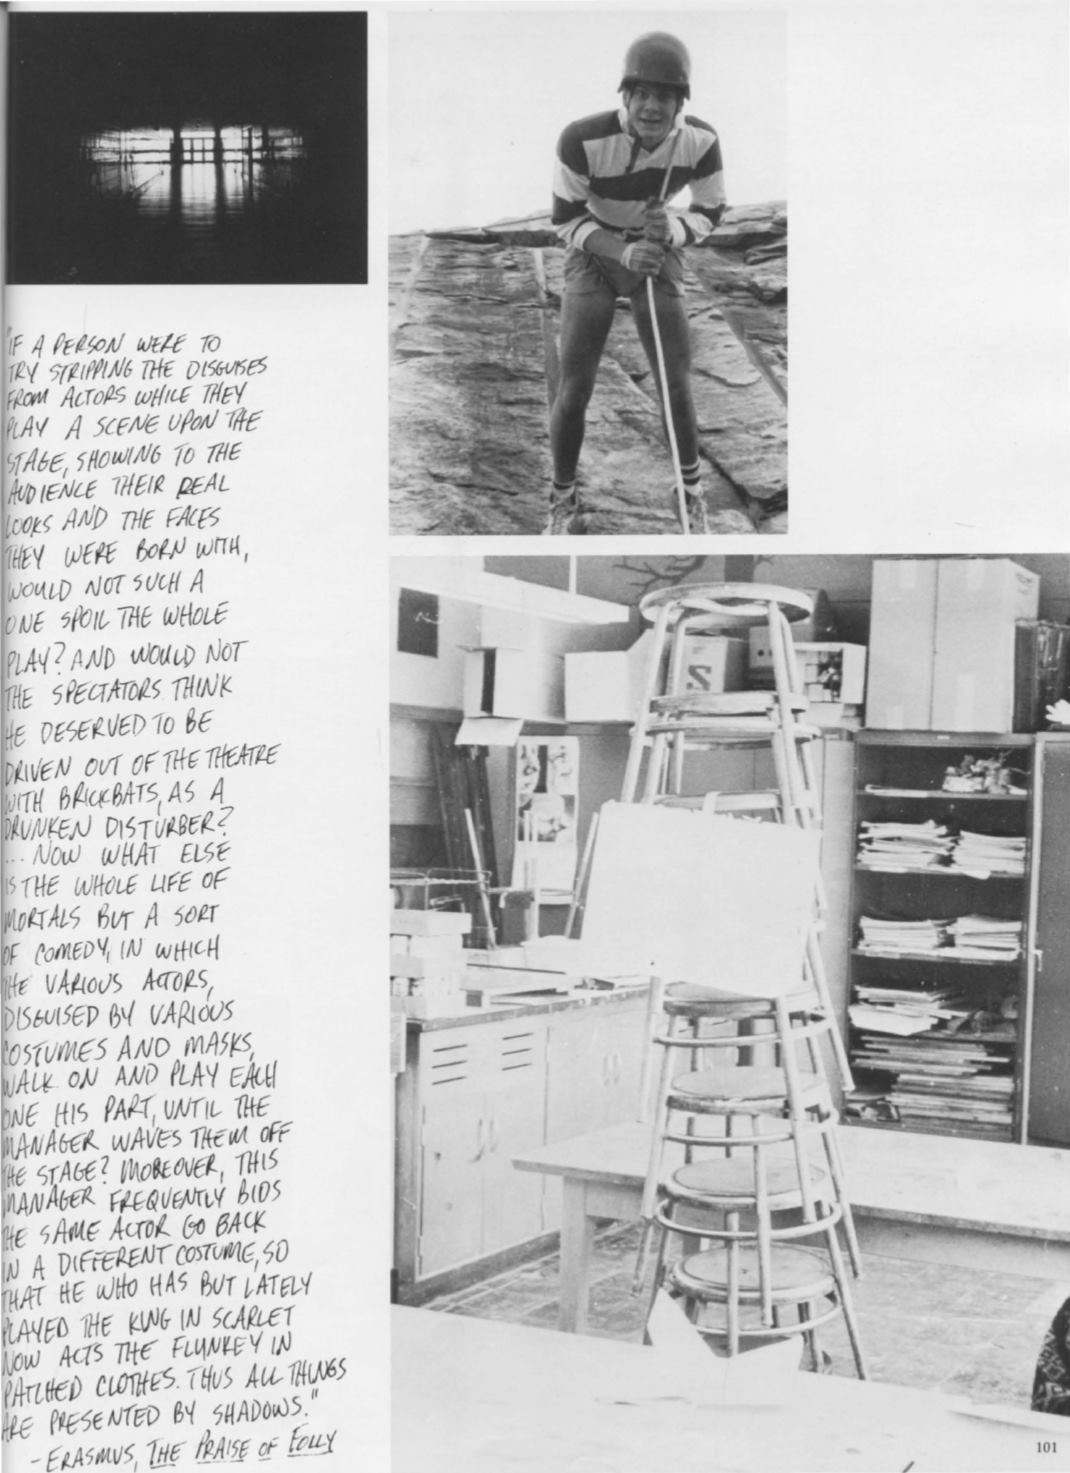 "IF A PERSON WERE TO
TRY STRIPPING THE DISGUISES
FROM ACTORS WHILE THEY
PLAY A SCENE UPON THE
STAGE, SHOWING TO THE
AUDIENCE THEIR REAL
LOOKS AND THE FACES
THEY WERE BORN WITH,
WOULD NOT SUCH A
ONE SPOIL THE WHOLE
PLAY? AND WOULD NOT
THE SPECTATORS THINK
HE DESERVED TO BE
DRIVEN OUT OF THE THEATRE
WITH BRICKBATS, AS A
DRUNKEN DISTURBER?
... NOW WHAT ELSE
IS THE WHOLE LIFE OF
MORTALS BUT A SORT
OF COMEDY, IN WHICH
THE VARIOUS ACTORS,
DISGUISED BY VARIOUS
COSTUMES AND MASKS,
WALK ON AND PLAY EACH
ONE HIS PART, UNTIL THE
MANAGER WAVES THEM OFF
THE STAGE? MOREOVER, THIS
MANAGER FREQUENTLY BIDS
THE SAME ACTOR GO BACK
IN A DIFFERENT COSTUME, SO
THAT HE WHO HAS BUT LATELY
PLAYED THE KING IN SCARLET
NOW ACTS THE FLUNKEY IN
PATCHED CLOTHES. THUS ALL THINGS
ARE PRESENTED BY SHADOWS."
- ERASMUS, THE PRAISE OF FOLLY
101